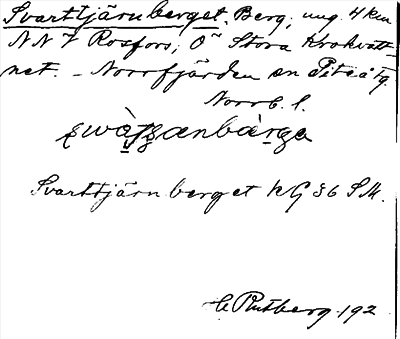 Svarttjärnberget. Berg, ung. 4 km
NNV Rosfors, Ö Stora Krokvatt-
net. - Norrfjärden sn Piteå tg.
Norrb. l.
Svarttjärnberget KG 36 SM.
C Rutberg 192